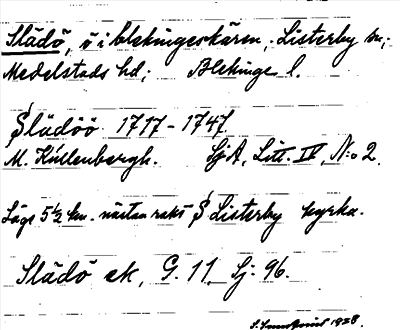 Slädö, ö i blekingeskären, Listerby sn;
Medelstads hd; Blekinge l.
Slädöö 1717-1747
M. Kúllenbergh. SjA, Litt. IV, N:o 2.
Läge 5½ km. nästan rakt S Listerby kyrka.
Slädö ek, G. 11, Sj. 96.
1928.